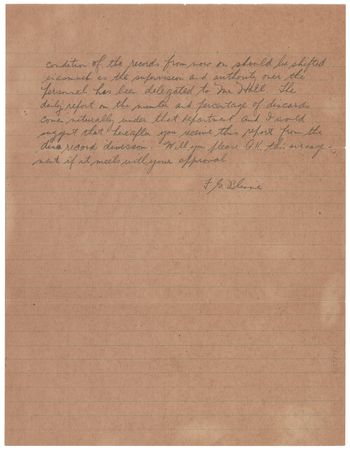 condition of the records from now on should be shifted
inasmuch as the supervision and authority over the
personnel has been delegated to Mr Hall. The
daily report on the number and percentage of discards
comes naturally under that department and I would
suggest that hereafter you receive this report from the
disc record division. Will you please O.K. this arrange-
ment if it meets with your approval